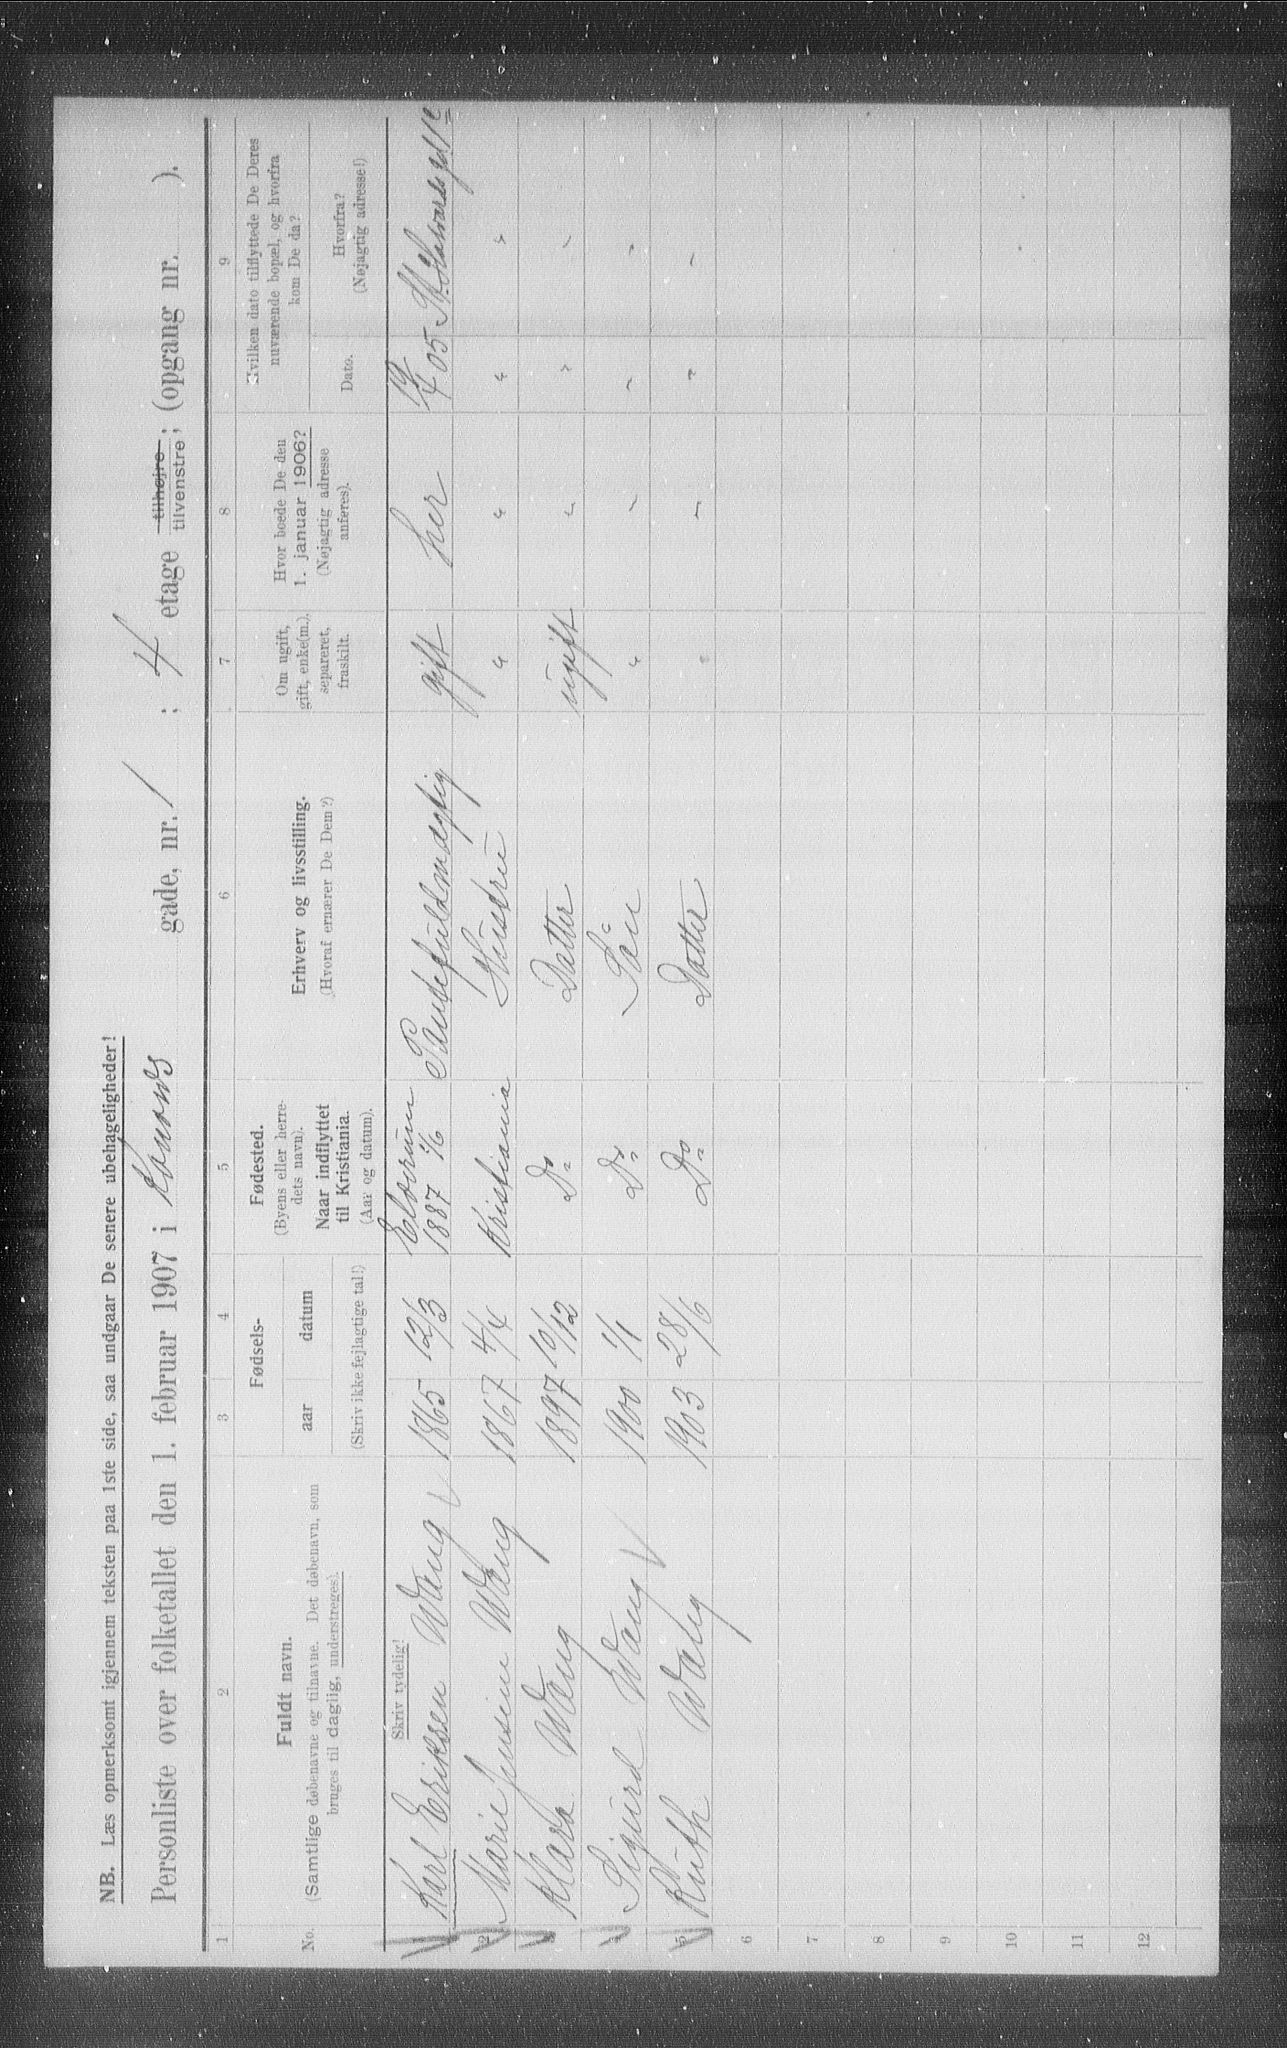 NB. Læs opmerksomt igjennem teksten paa 1ste side, saa undgaar De senere ubehageligheder!
Personliste over folketallet den 1. februar 1907 i Konows gade, nr. 1 ; 4 etage tilhøjre, tilvenstre; (opgang nr. ).
1 2 3 4 5 6 7 8 9
No. Fuldt navn. (Samtlige døbenavne og tilnavne. Det døbenavn, som bruges til daglig, understreges).
Fødsels- aar datum (Skriv ikke fejlagtige tal!)
Fødested. (Byens eller herredets navn). Naar indflyttet til Kristiania. (Aar og datum).
Erhverv og livsstilling. (Hvoraf ernærer De Dem?)
Om ugift, gift, enke(m.), separeret, fraskilt.
Hvor boede De den 1. januar 1906? (Nøjagtig adresse anføres).
Hvilken dato tilflyttede De Deres nuværende bopæl, og hvorfra kom De da?
Dato. Hvorfra? (Nøjagtig adresse!)
Skriv tydelig!
Karl Eriksen Wang 1865 12/3 Elverum 1887 1/6 gift her 05
2 Marie Jensine Wang 1867 4/4 Kristiania Hustru " " " "
3 Klara Wang 1897 10/12 Do Datter ugift " " "
4 Sigurd Wang 1900 1/1 Do Sön " " " "
5 Ruth Wang 1903 28/6 Do Datter " " " "
6
7
8
9
10
11
12